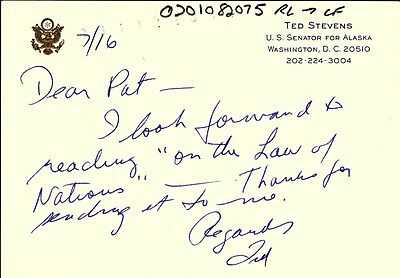 0201082075 RL → CF
TED STEVENS
U. S. SENATOR FOR ALASKA
WASHINGTON, D. C. 20510
202-224-3004
7/16
Dear Pat —
I look forward to
reading "on the Law of
Nations" — Thanks for
sending it to me.
Regards
Ted